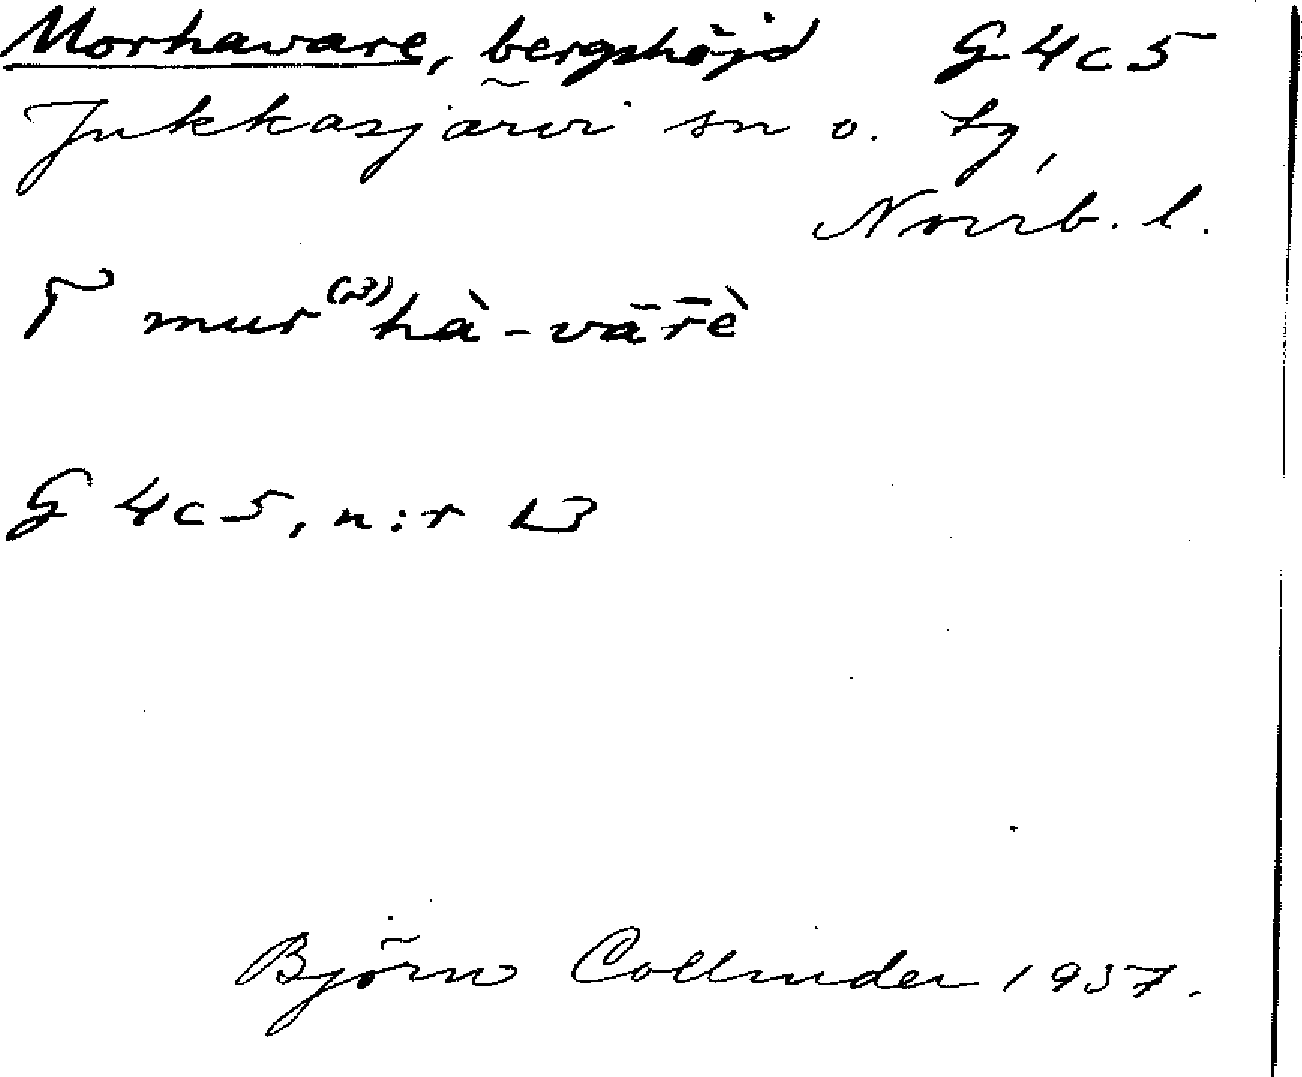 Morhavare, bergshöjd G 4 c 5
Jukkasjärvi sn o. tg,
Norrb. l.
T mur⁽ᵊ⁾hà-vārè̄
G 4 c 5, n:r 13
Björn Collinder 1957.